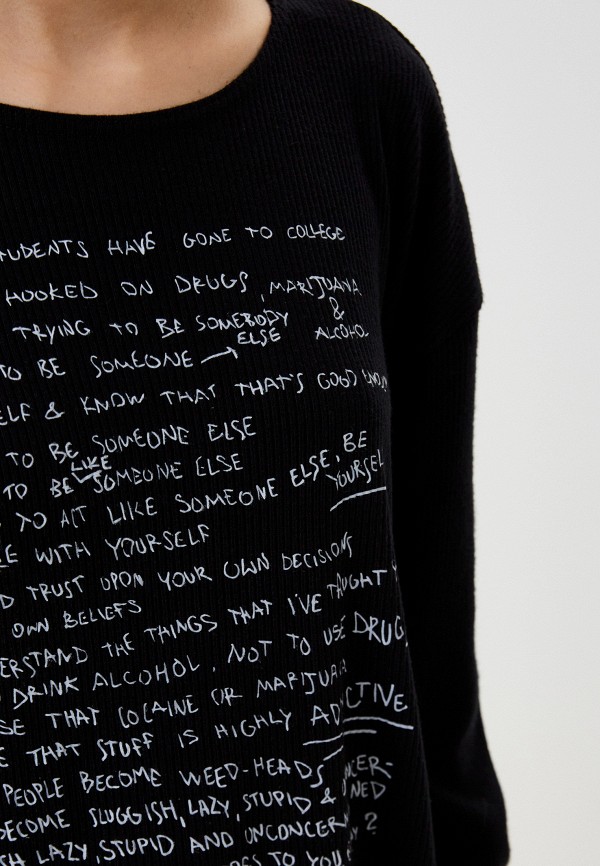 TUDENTS HAVE GONE TO COLLEGE
HOOKED ON DRUGS, MARIJUANA
& ALCOHOL
TRYING TO BE SOMEBODY ELSE
TO BE SOMEONE →
ELF & KNOW THAT THAT'S GOOD
TO BE SOMEONE ELSE
TO BE LIKE SOMEONE ELSE
TO ACT LIKE SOMEONE ELSE, BE YOURSEL
E WITH YOURSELF
D TRUST UPON YOUR OWN DECISIONS
OWN BELIEFS
ERSTAND THE THINGS THAT I'VE TAUGHT Y
DRINK ALCOHOL, NOT TO USE DRUG
SE THAT COCAINE OR MARIJUANA
E THAT STUFF IS HIGHLY ADICTIVE
PEOPLE BECOME WEED-HEADS
BECOME SLUGGISH, LAZY, STUPID & NCER-
NED
SH LAZY, STUPID AND UNCONCERN ?
S TO YOU